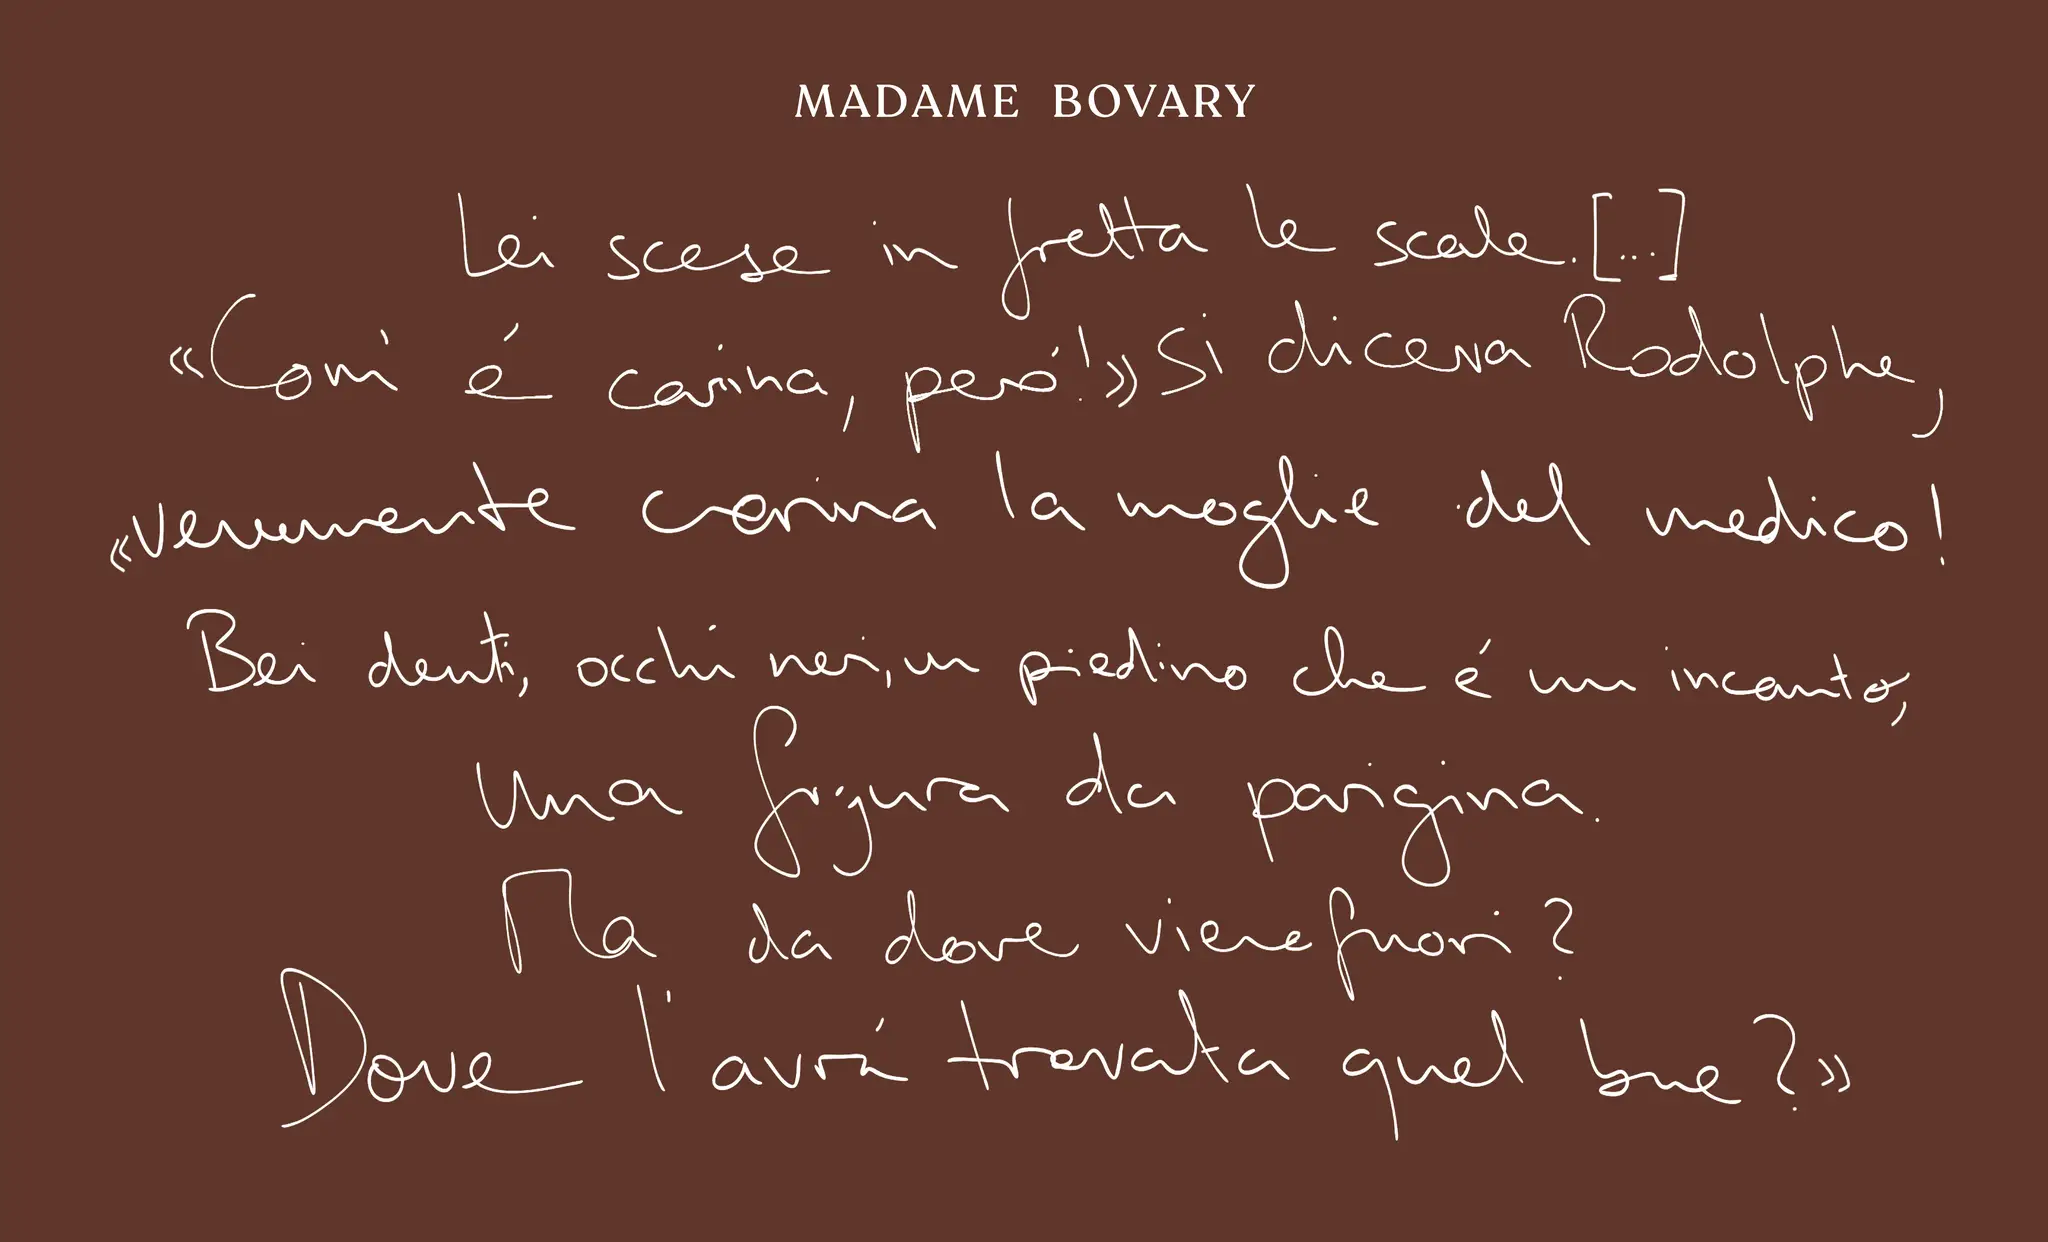 MADAME BOVARY
Lei scese in fretta le scale. [...]
«Com' é carina, peró!» Si diceva Rodolphe,
«veramente carina la moglie del medico!
Bei denti, occhi neri, un piedino che é un incanto,
una figura da parigina.
Ma da dove viene fuori?
Dove l'avrá trovata quel bue?»